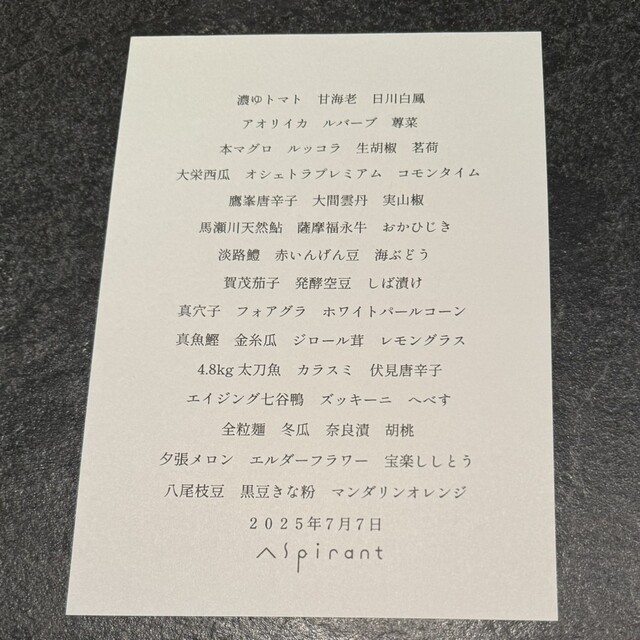 濃ゆトマト　甘海老　日川白鳳
アオリイカ　ルバーブ　蓴菜
本マグロ　ルッコラ　生胡椒　茗荷
大栄西瓜　オシェトラプレミアム　コモンタイム
鷹峯唐辛子　大間雲丹　実山椒
馬瀬川天然鮎　薩摩福永牛　おかひじき
淡路鱧　赤いんげん豆　海ぶどう
賀茂茄子　発酵空豆　しば漬け
真穴子　フォアグラ　ホワイトパールコーン
真魚鰹　金糸瓜　ジロール茸　レモングラス
4.8kg 太刀魚　カラスミ　伏見唐辛子
エイジング七谷鴨　ズッキーニ　へべす
全粒麺　冬瓜　奈良漬　胡桃
夕張メロン　エルダーフラワー　宝楽ししとう
八尾枝豆　黒豆きな粉　マンダリンオレンジ
２０２５年７月７日
Aspirant